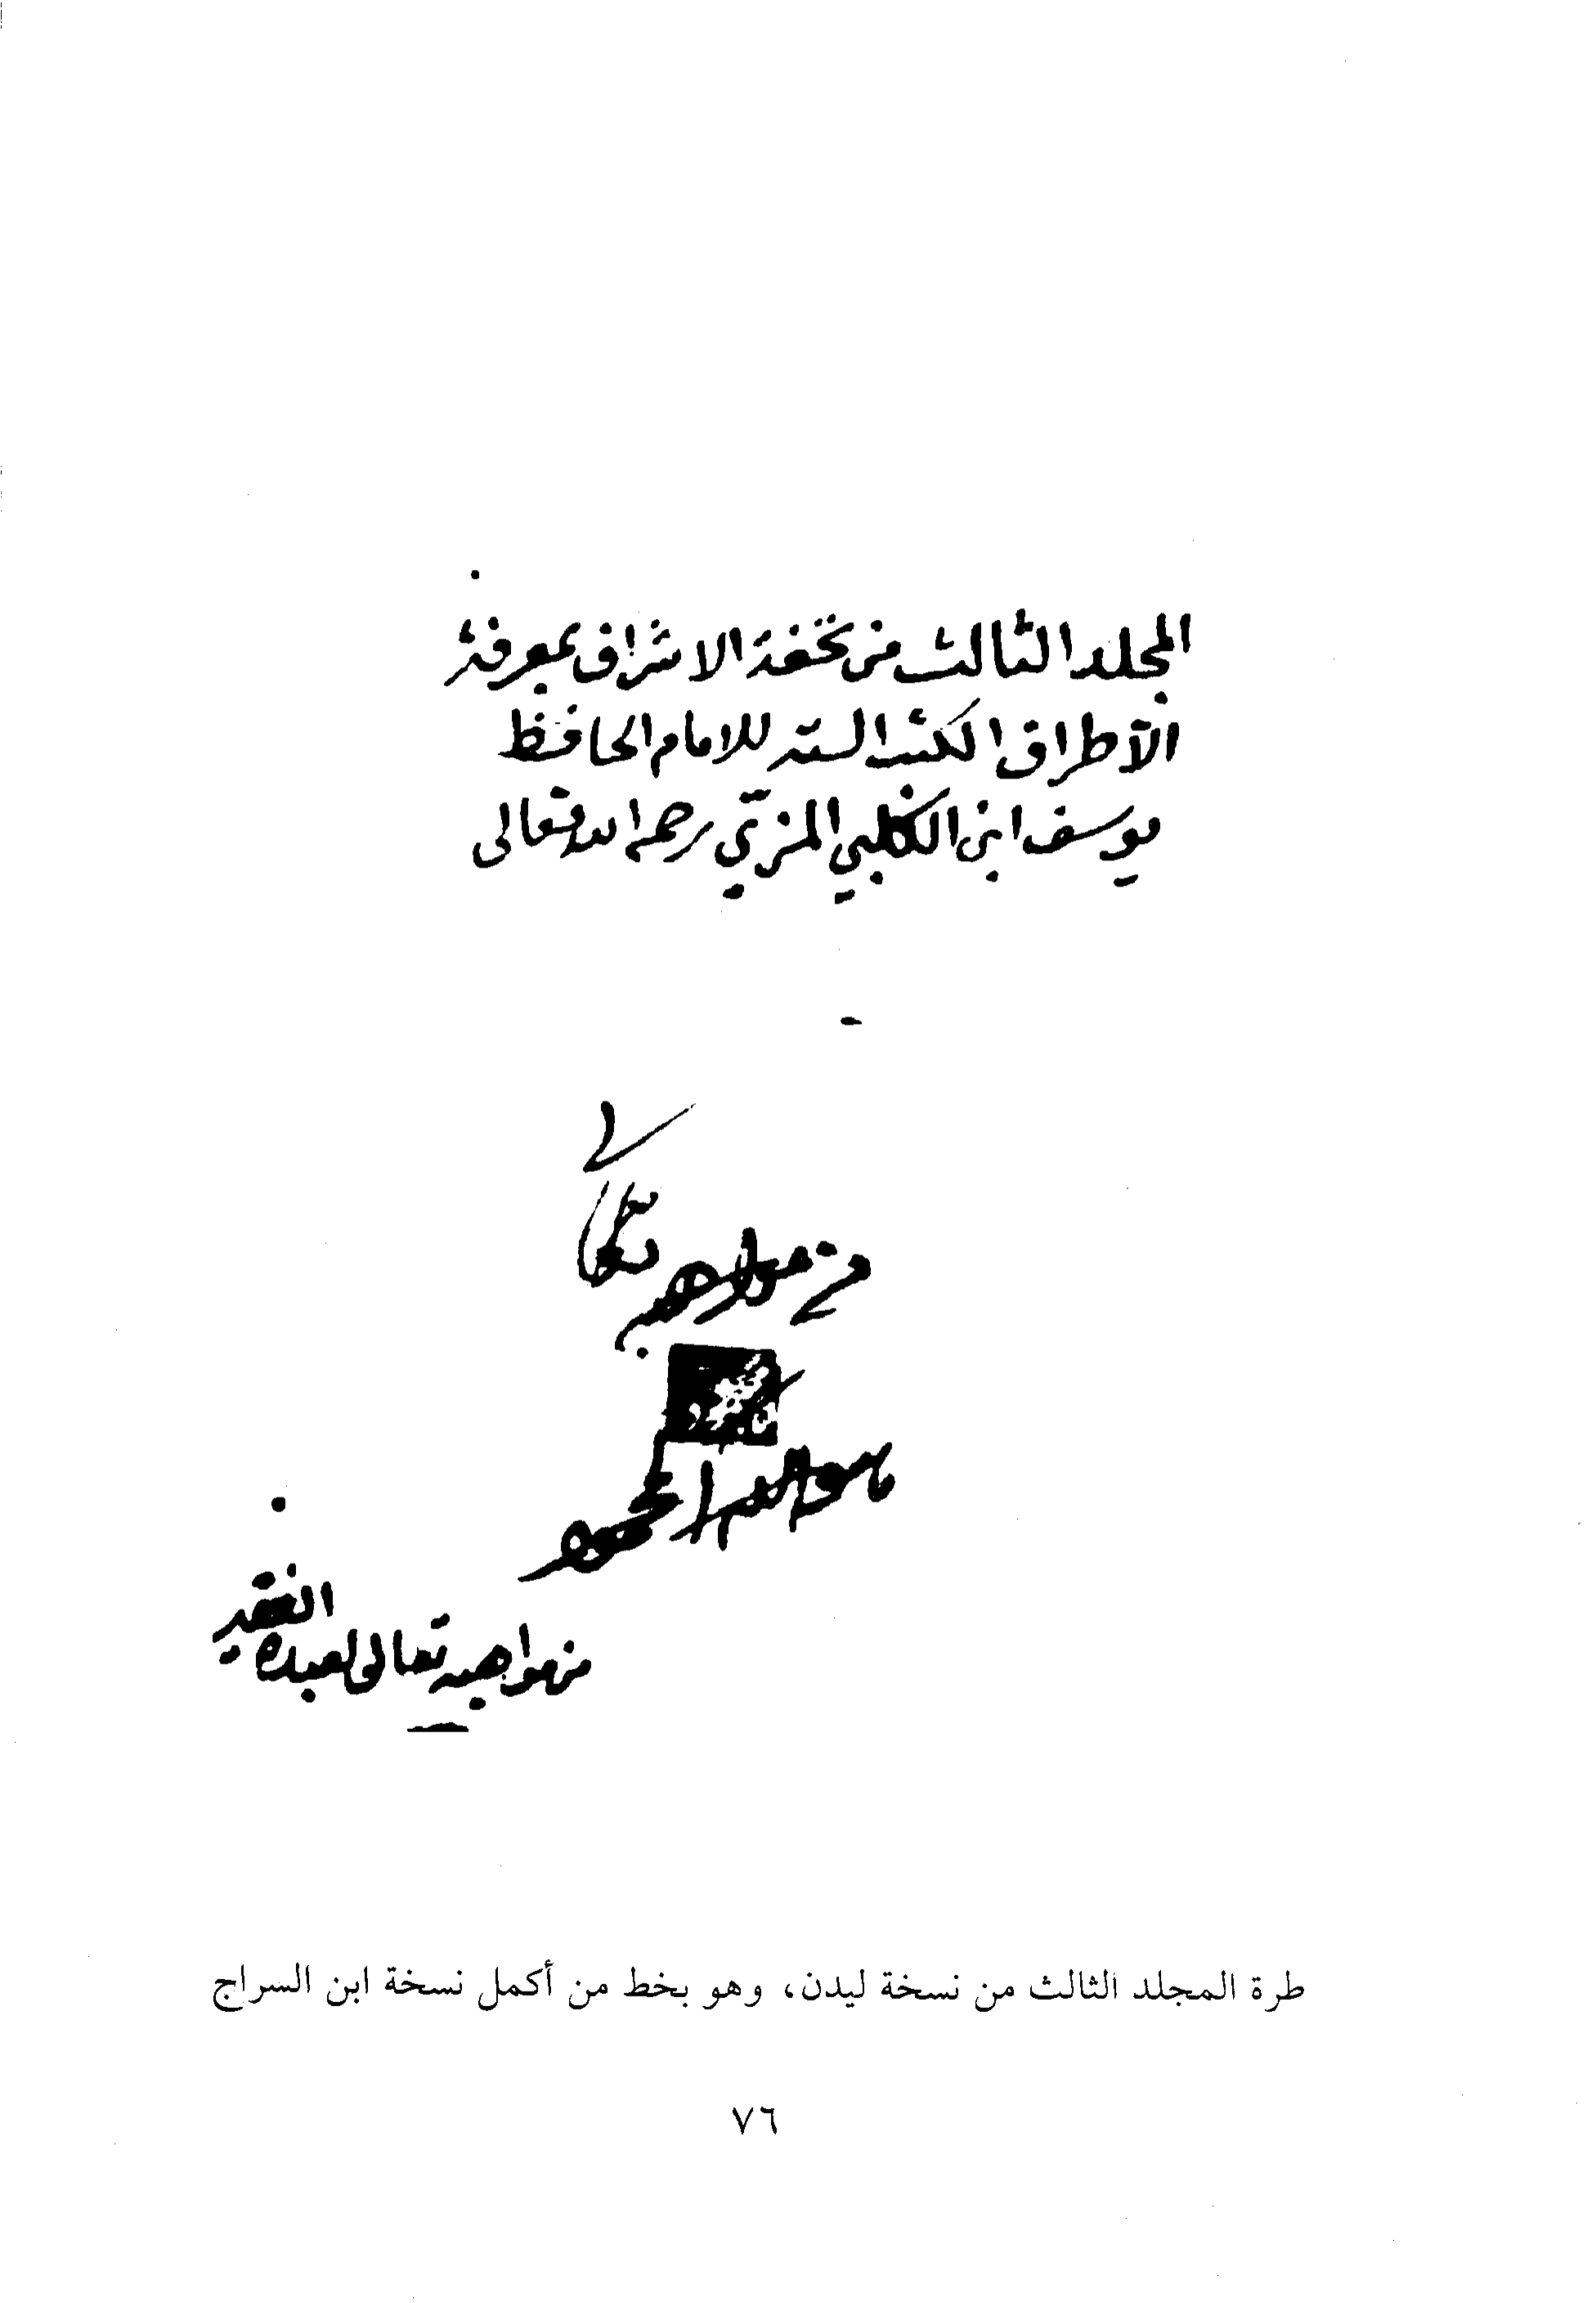 المجلد الثالث من تحفة الاشراف بمعرفة
الأطراف الكتب الستة للامام الحافظ
يوسف ابن الكلبي المزيّ رحمه الله تعالى
من مواهبه
الفقير
من مواهبه تعالى لعبده
طرة المجلد الثالث من نسخة ليدن، وهو بخط من أكمل نسخة ابن السراج
٧٦